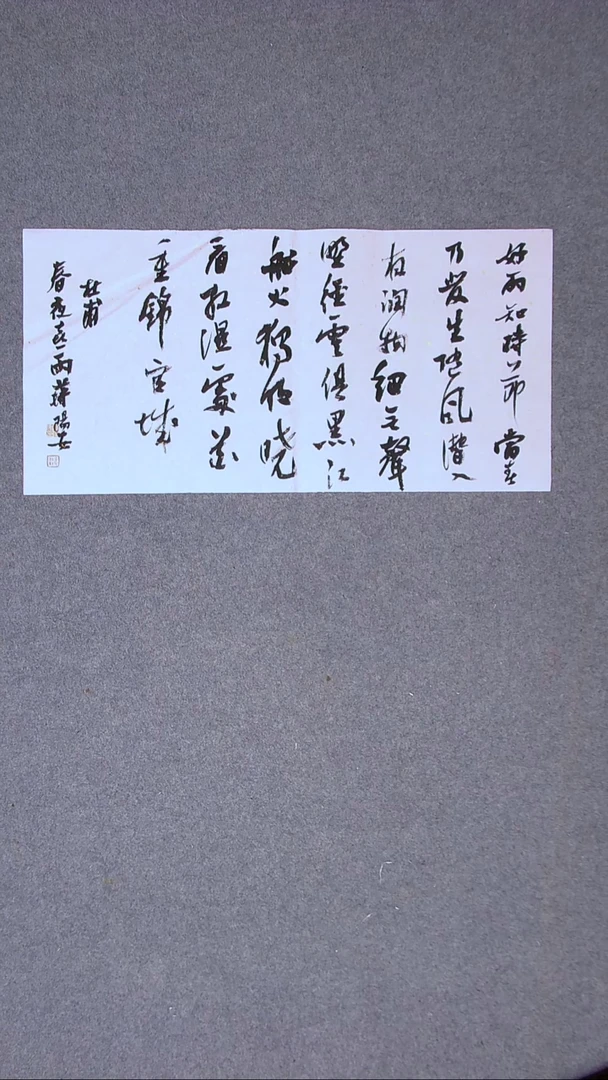 好雨知時節當春
乃發生隨風潛入
夜潤物細無聲
野徑雲俱黑江
船火獨明曉
看紅濕處花
重錦官城
杜甫
春夜喜雨